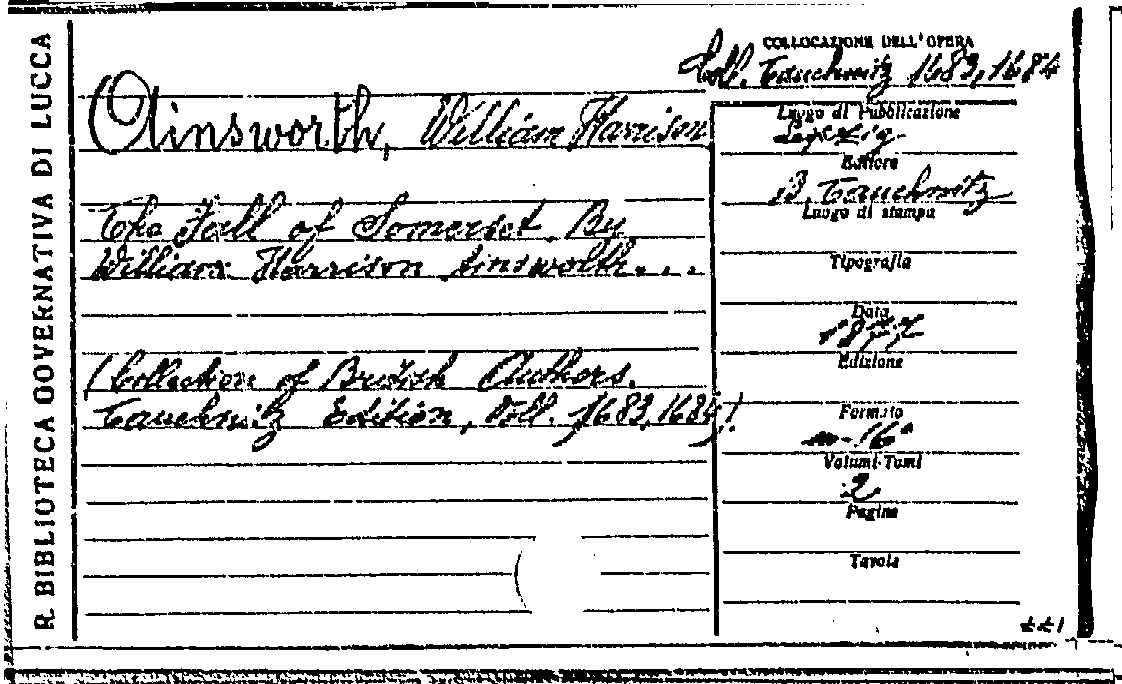 R. BIBLIOTECA GOVERNATIVA DI LUCCA
COLLOCAZIONE DELL'OPERA
Coll. Tauchnitz 1683, 1684
Ainsworth, William Harrison
The Fall of Somerset. By
William Harrison Ainsworth...
(Collection of British Authors.
Tauchnitz Edition, Voll. 1683, 1684).
Luogo di Pubblicazione
Leipzig
Editore
B. Tauchnitz
Luogo di stampa
Tipografia
Data
1877
Edizione
Formato
in-16°
Volumi-Tomi
2
Pagine
Tavole